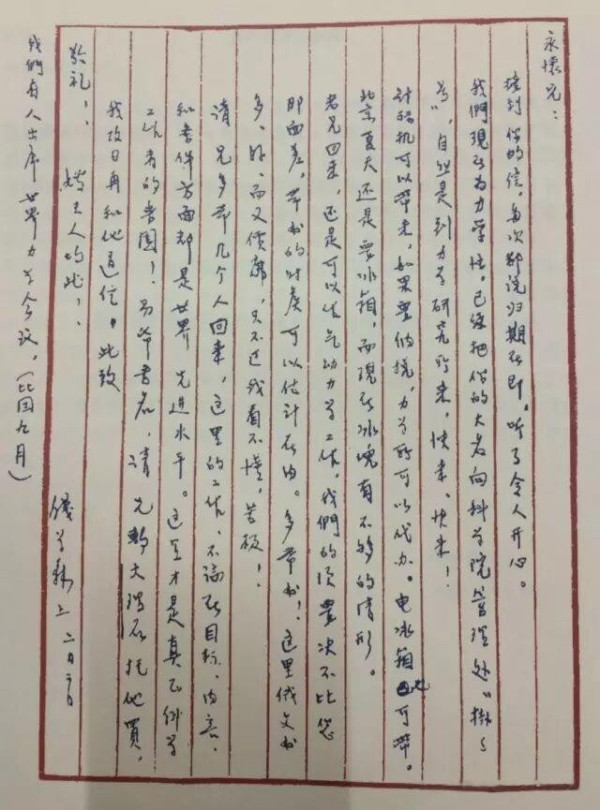 永懷兄：
接到你的信，每次都说归期在即，听了令人开心。
我們現在为力学忙，已经把你的大名向科学院管理处"掛了
号"，自然是到力学研究所来，快来、快来！
计祘机可以帶来，如果要纳税，力学所可以代办。电冰箱也可帶。
北京夏天还是要冰箱，而現在冰塊有不够的情形。
老兄回来，还是可以做气动力学工作，我們的设置决不比您
那面差，帶书的时候可以估计在内。多帶书！这里俄文书
多、好、而又價廉，只不过我看不懂，苦哉！
请兄多帶几个人回来，这里的工作，不論在目标、内容、
和条件方面都是世界先进水平。这里才是真正科学
工作者的乐園！另帶书名，请兄轉大瑞石托他買，
我改日再和他通信。此致
敬礼！
嫂夫人均此！
錢学森上 二月六日
我們有人出席世界力学会议。（比国九月）